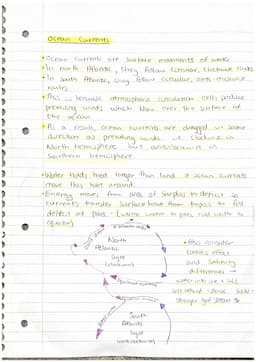 Ocean Currents
• Ocean currents are surface movements of water
• In north Atlantic, they follow circular, clockwise routes
• In south Atlantic, they follow circular, anti-clockwise
routes
• This is because atmospheric circulation cells produce
prevailing winds which blow over the surface of
the ocean
• As a result, ocean currents are dragged in same
direction as prevailing winds i.e. clockwise in
North hemisphere but anticlockwise in
Southern hemisphere
• Water holds heat longer than land & ocean currents
move this heat around.
• Energy moves from area of surplus to deficit so
currents transfer surface heat from tropics to fill
deficit at poles
North
Atlantic
Gyre
(clockwise)
• Also consider
coriolis effect
and salinity
differences →
South
Atlantic
Gyre
(anti-clockwise)